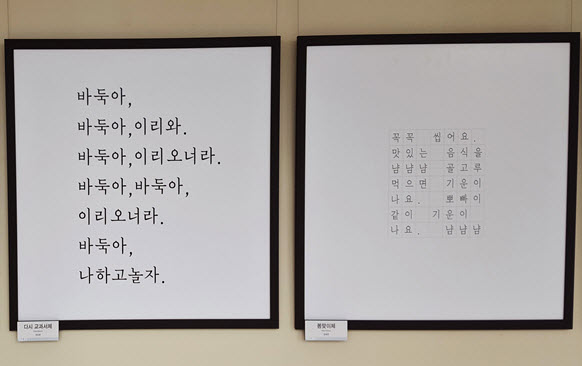 바둑아,
바둑아,이리와.
바둑아,이리오너라.
바둑아,바둑아,
이리오너라.
바둑아,
나하고놀자.
다시 교과서체
꼭꼭 씹어요.
맛있는 음식을
냠냠냠 골고루
먹으면 기운이
나요. 뽀빠이
같이 기운이
나요. 냠냠냠